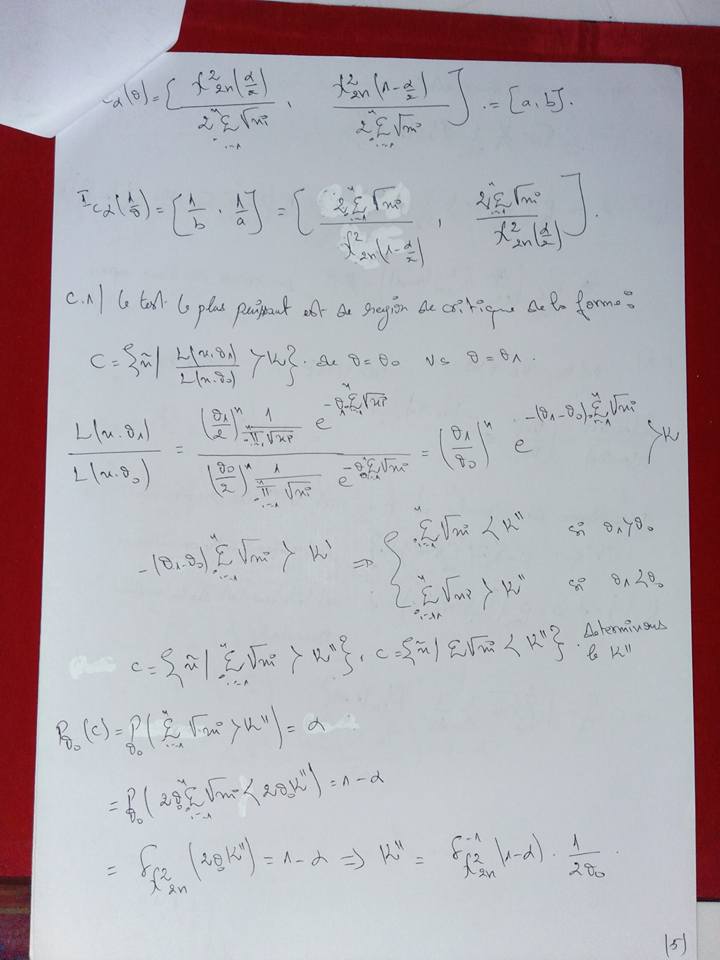 C_α(θ) = [ χ²_{2n}(α/2) / 2 Σ_{i=1}^{n} √xi , χ²_{2n}(1-α/2) / 2 Σ_{i=1}^{n} √xi ] . = [a, b].
I_{cα}(1/θ) = [ 1/b , 1/a ] = [ 2 Σ_{i=1}^{n} √xi / χ²_{2n}(1-α/2) , 2 Σ_{i=1}^{n} √xi / χ²_{2n}(α/2) ].
C.1) le test le plus puissant est de region de critique de la forme:
C = { x̃ | L(x.θ1) / L(x.θ0) > K } . de θ = θ0 vs θ = θ1.
L(x.θ1) / L(x.θ0) = (θ1/2)^n 1/(Π_{i=1}^{n} √xi) e^{-θ1 Σ_{i=1}^{n} √xi} / (θ0/2)^n 1/(Π_{i=1}^{n} √xi) e^{-θ0 Σ_{i=1}^{n} √xi} = (θ1/θ0)^n e^{-(θ1-θ0) Σ_{i=1}^{n} √xi} > K
-(θ1-θ0) Σ_{i=1}^{n} √xi > K' ⇒ { Σ_{i=1}^{n} √xi < K'' si θ1 > θ0
Σ_{i=1}^{n} √xi > K'' si θ1 < θ0
C = { x̃ | Σ_{i=1}^{n} √xi > K'' } , C = { x̃ | Σ √xi < K'' } . Determinons
le K''
P_{θ0}(C) = P_{θ0}( Σ_{i=1}^{n} √xi > K'' ) = α
= P_{θ0}( 2θ0 Σ_{i=1}^{n} √xi < 2θ0K'' ) = 1-α
= F_{χ²_{2n}}(2θ0K'') = 1-α ⇒ K'' = F^{-1}_{χ²_{2n}}(1-α) . 1/2θ0 .
(5)